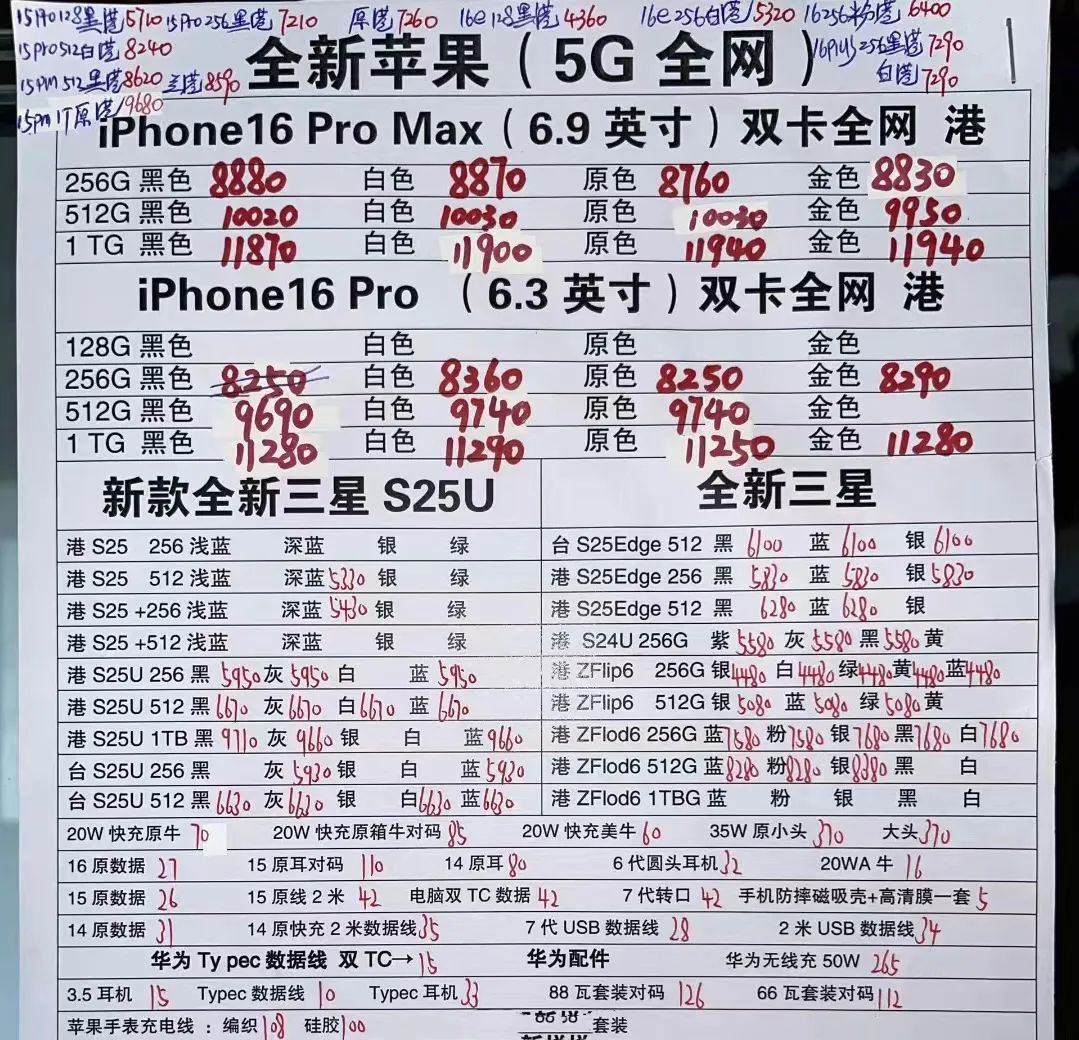 15Pro128黑港5710 15Pro256黑港7210 原港7260 16e128黑港4360 16e256白港5320 16256粉港6400
15Pro512白港8240 16Plus256黑港7290
15pm512黑港8620 兰港8590 白港7290
15pm1T原港9680
全新苹果（5G 全网）
iPhone16 Pro Max（6.9 英寸）双卡全网 港
256G 黑色 8880 白色 8870 原色 8760 金色 8830
512G 黑色 10020 白色 10030 原色 10030 金色 9950
1 TG 黑色 11870 白色 11900 原色 11940 金色 11940
iPhone16 Pro （6.3 英寸）双卡全网 港
128G 黑色 白色 原色 金色
256G 黑色 8250 白色 8360 原色 8250 金色 8290
512G 黑色 9690 白色 9740 原色 9740 金色
1 TG 黑色 11280 白色 11290 原色 11250 金色 11280
新款全新三星 S25U 全新三星
港 S25 256 浅蓝 深蓝 银 绿 台 S25Edge 512 黑 6100 蓝 6100 银 6100
港 S25 512 浅蓝 深蓝 5330 银 绿 港 S25Edge 256 黑 5830 蓝 5830 银 5830
港 S25 +256 浅蓝 深蓝 5430 银 绿 港 S25Edge 512 黑 6280 蓝 6280 银
港 S25 +512 浅蓝 深蓝 银 绿 港 S24U 256G 紫 5580 灰 5580 黑 5580 黄
港 S25U 256 黑 5950 灰 5950 白 蓝 5950 港 ZFlip6 256G 银 4480 白 4480 绿 4480 黄 4480 蓝 4480
港 S25U 512 黑 6670 灰 6670 白 6670 蓝 6670 港 ZFlip6 512G 银 5080 蓝 5080 绿 5080 黄
港 S25U 1TB 黑 9710 灰 9660 银 白 蓝 9660 港 ZFlod6 256G 蓝 7580 粉 7580 银 7680 黑 7680 白 7680
台 S25U 256 黑 灰 5930 银 白 蓝 5930 港 ZFlod6 512G 蓝 8280 粉 8280 银 8380 黑 白
台 S25U 512 黑 6630 灰 6630 银 白 6630 蓝 6630 港 ZFlod6 1TBG 蓝 粉 银 黑 白
20W 快充原牛 70 20W 快充原箱牛对码 85 20W 快充美牛 60 35W 原小头 370 大头 370
16 原数据 27 15 原耳对码 110 14 原耳 80 6 代圆头耳机 32 20WA 牛 16
15 原数据 26 15 原线 2 米 42 电脑双 TC 数据 42 7 代转口 42 手机防摔磁吸壳+高清膜一套 5
14 原数据 31 14 原快充 2 米数据线 35 7 代 USB 数据线 28 2 米 USB 数据线 34
华为 Ty pec 数据线 双 TC→ 15 华为配件 华为无线充 50W 265
3.5 耳机 15 Typec 数据线 10 Typec 耳机 33 88 瓦套装对码 126 66 瓦套装对码 112
苹果手表充电线 ：编织 108 硅胶 100 套装